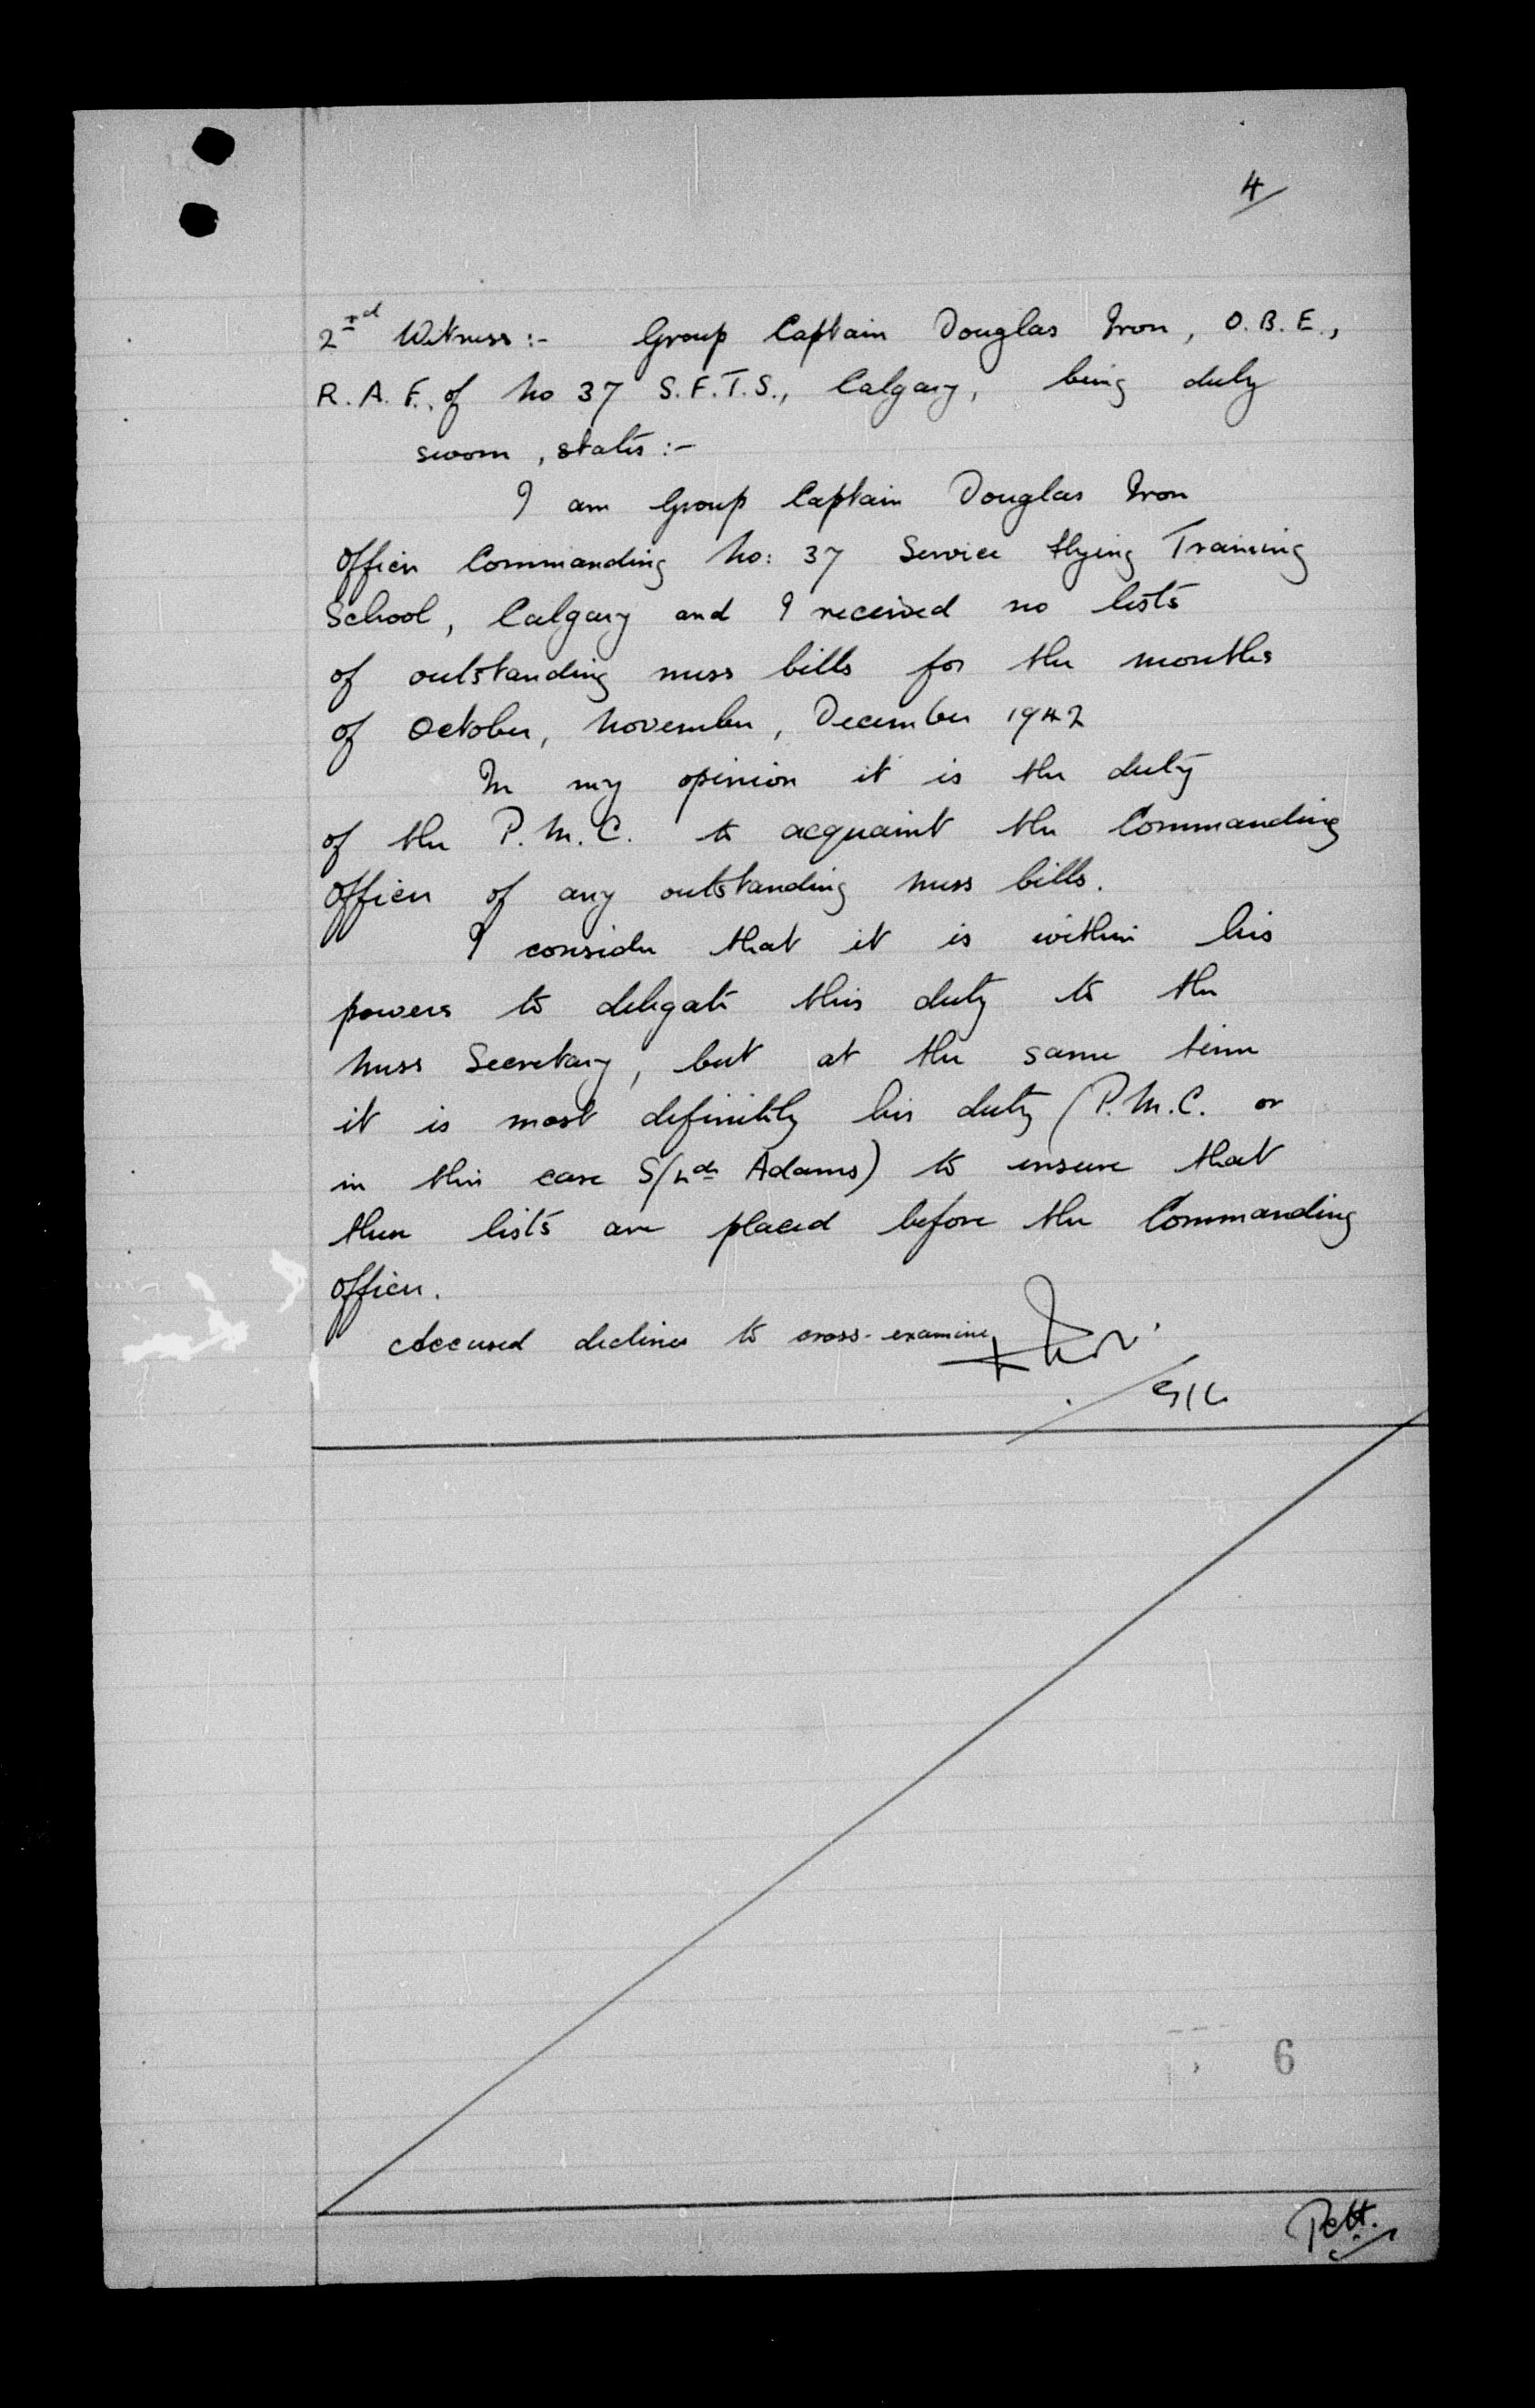 4
2nd Witness :- Group Captain Douglas Iron, O.B.E.,
R.A.F. of No 37 S.F.T.S., Calgary, being duly
sworn, states :-
I am Group Captain Douglas Iron
Officer Commanding No: 37 Service Flying Training
School, Calgary and I received no lists
of outstanding mess bills for the months
of October, November, December 1942
In my opinion it is the duty
of the P.M.C. to acquaint the Commanding
Officer of any outstanding mess bills.
I consider that it is within his
powers to delegate this duty to the
Mess Secretary, but at the same time
it is most definitely his duty (P.M.C. or
in this case S/Ldr Adams) to ensure that
these lists are placed before the Commanding
Officer.
Accused declines to cross-examine
G/C
6